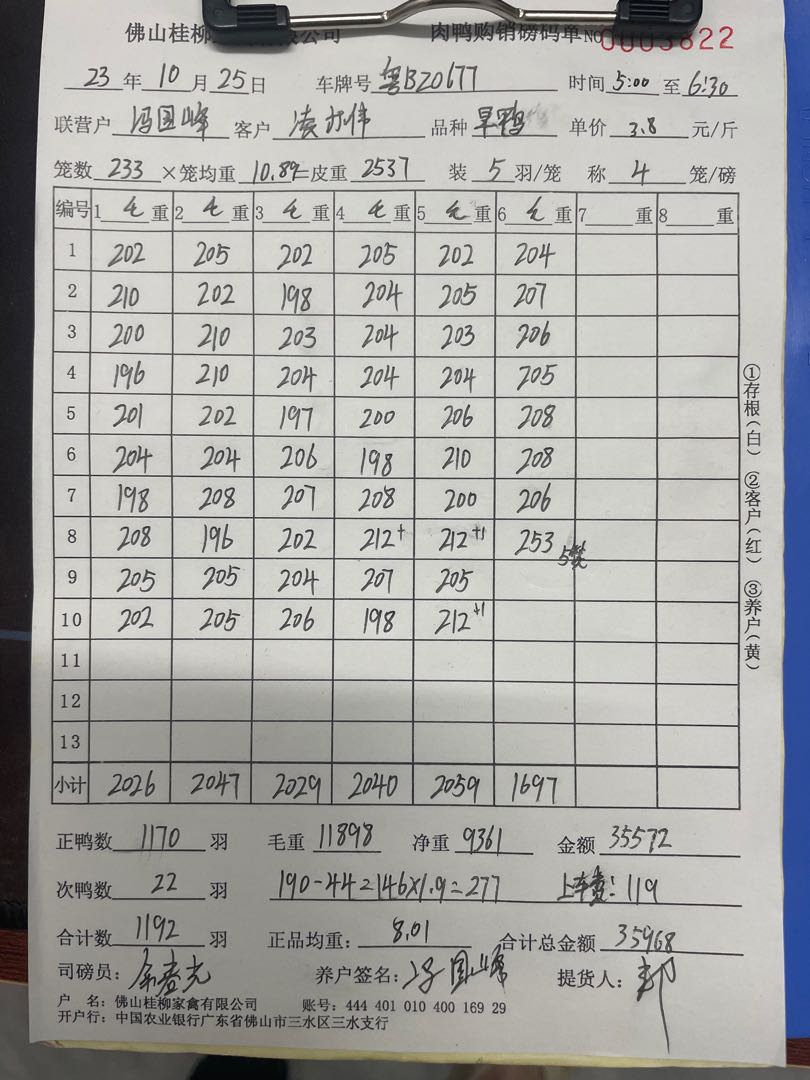 佛山桂柳 有限公司 肉鸭购销磅码单 NO 0003822
23年10月25日 车牌号 粤BZ0677 时间 5:00 至 6:30
联营户 冯国峰 客户 凌 伟 品种 旱鸭 单价 3.8 元/斤
笼数 233 ×笼均重 10.89=皮重 2537 装 5 羽/笼 称 4 笼/磅
编号 1 毛 重 2 毛 重 3 毛 重 4 毛 重 5 毛 重 6 毛 重 7 重 8 重
1 202 205 202 205 202 204
2 210 202 198 204 205 207
3 200 210 203 204 203 206
4 196 210 204 204 204 205
5 201 202 197 200 206 208
6 204 204 206 198 210 208
7 198 208 207 208 200 206
8 208 196 202 212+ 212+1 253 5笼
9 205 205 204 207 205
10 202 205 206 198 212+1
11
12
13
小计 2026 2047 2029 2040 2059 1697
①存根(白) ②客户(红) ③养户(黄)
正鸭数 1170 羽 毛重 11898 净重 9361 金额 35572
次鸭数 22 羽 190-44=146×1.9=277 上车费: 119
合计数 1192 羽 正品均重: 8.01 合计总金额 35968
司磅员: 养户签名: 冯国峰 提货人: 郭
户 名: 佛山桂柳家禽有限公司 账号: 444 401 010 400 169 29
开户行: 中国农业银行广东省佛山市三水区三水支行